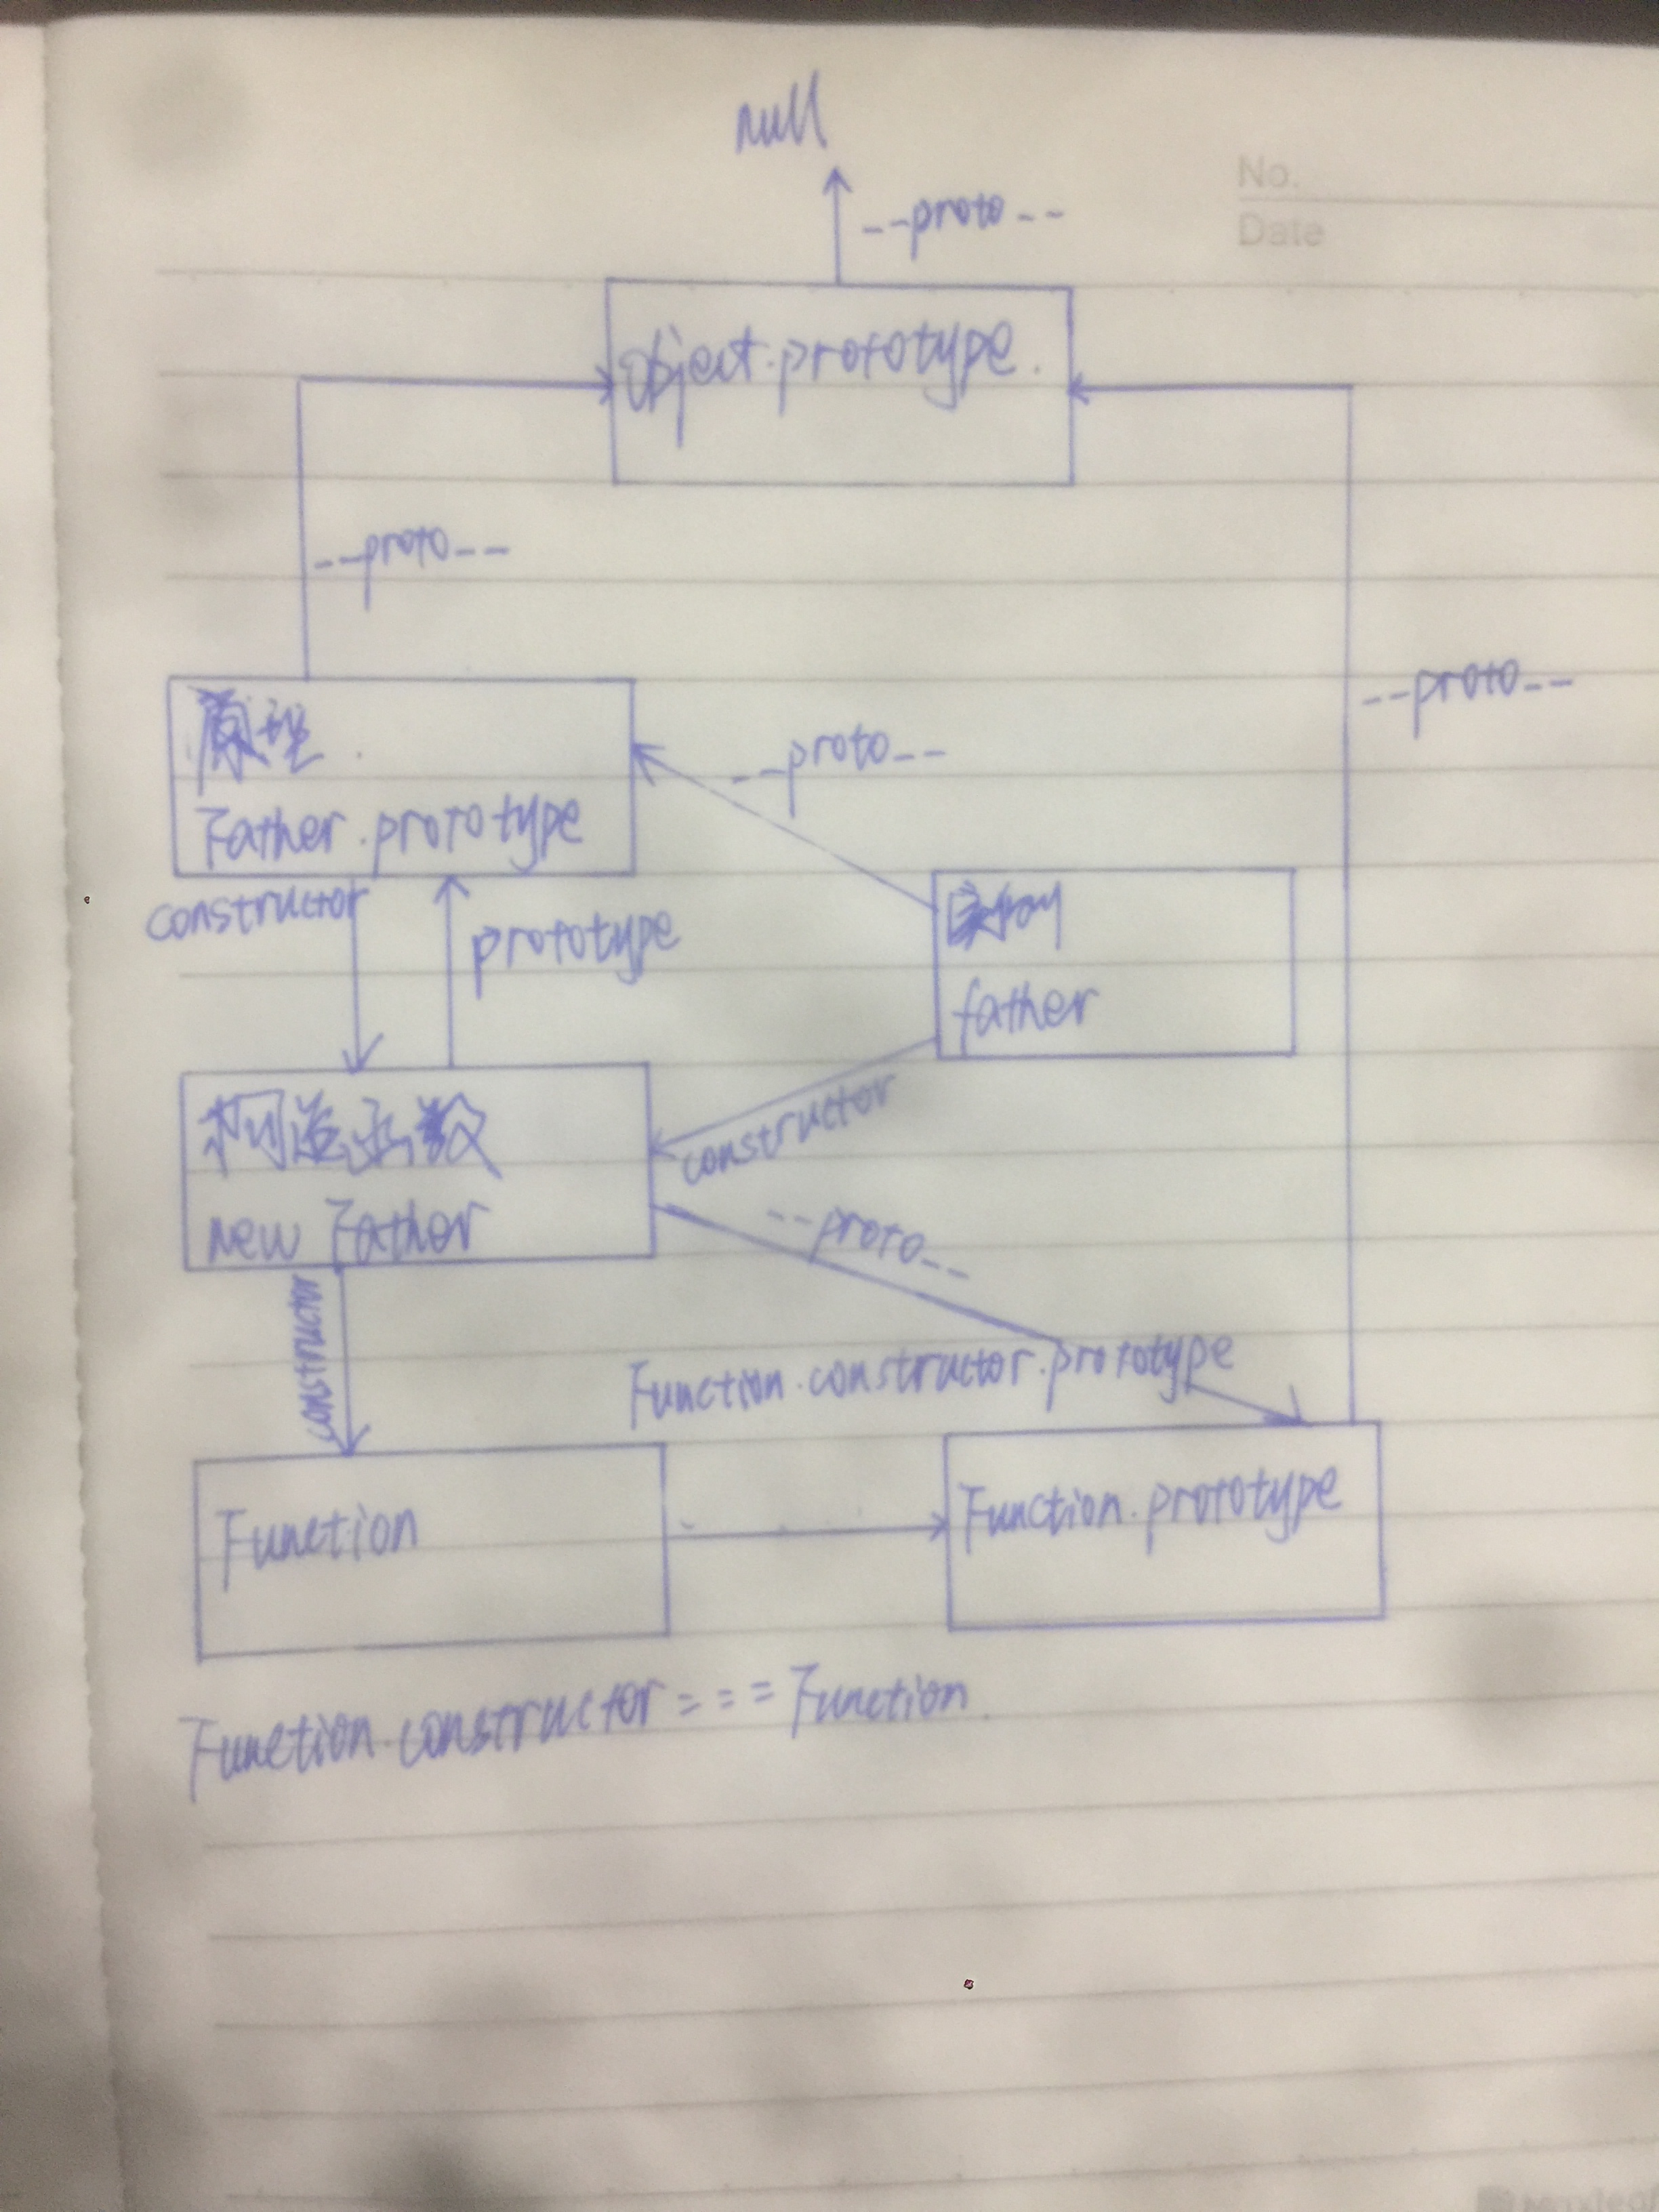 null
No.
--proto--
Date
Object.prototype.
--proto--
--proto--
原型.
--proto--
Father.prototype
constructor
prototype
father
构造函数
constructor
new Father
--proto--
constructor
Function.constructor.prototype
Function
Function.prototype
Function.constructor === Function.